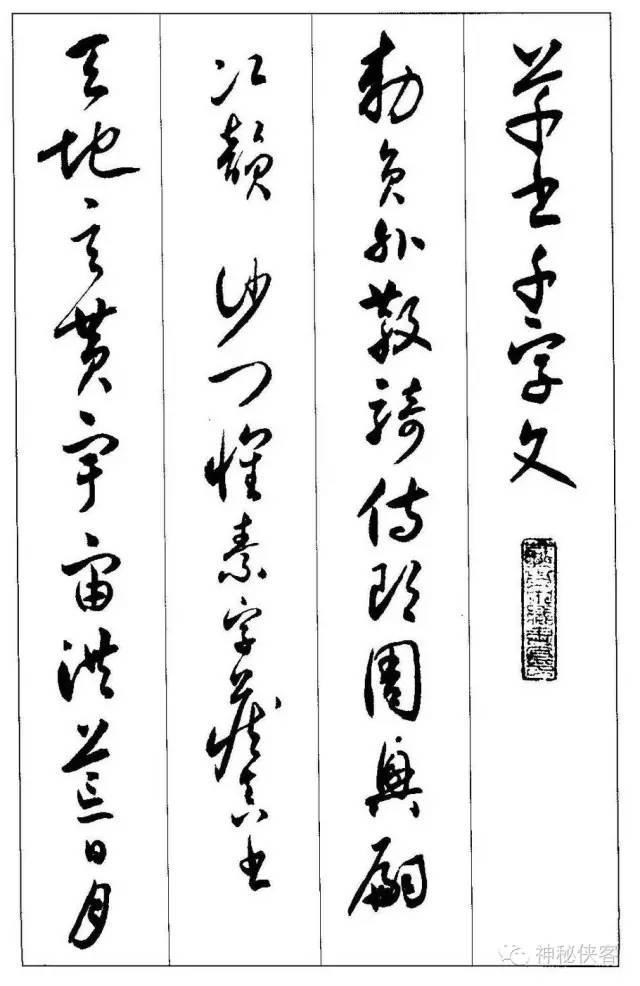 草書千字文
勅員外散騎侍郎周興嗣
次韻 沙門懷素字藏真書
天地玄黃宇宙洪荒日月
神秘侠客